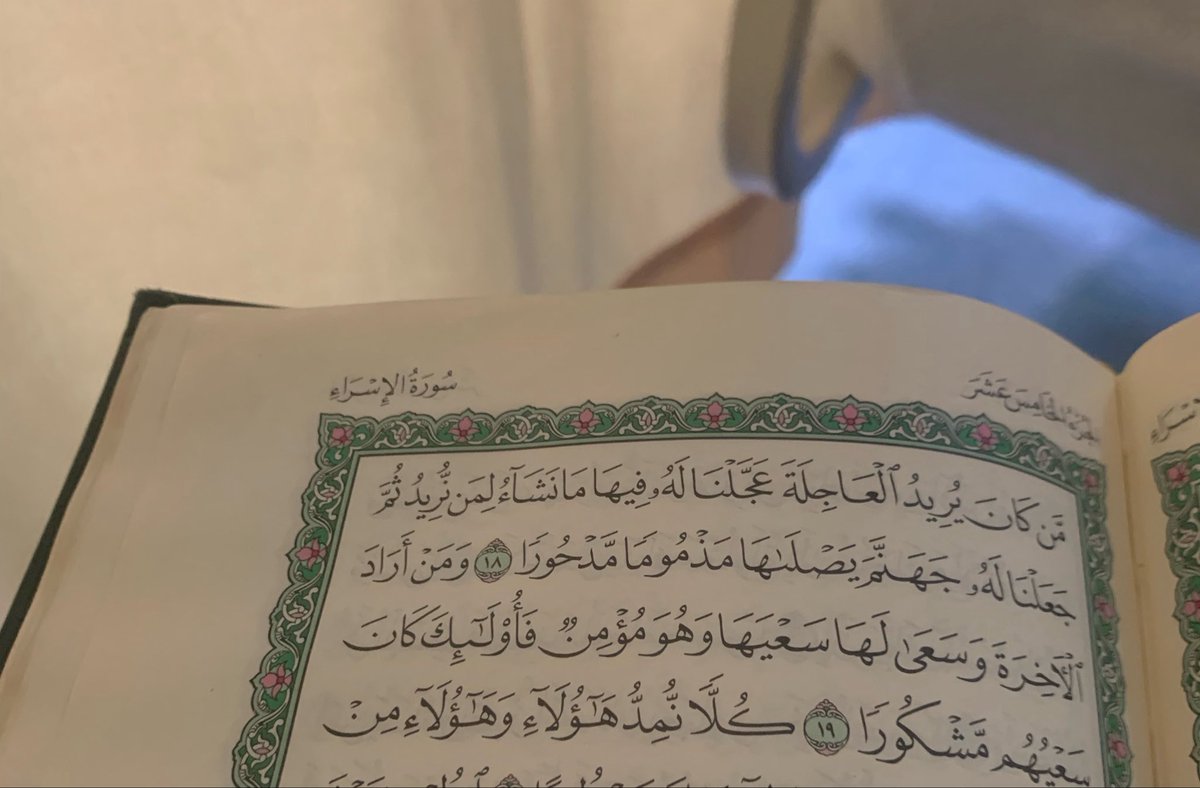 سُورَةُ الإِسْرَاءِ
الجُزْءُ الخَامِسَ عَشَرَ
مَّن كَانَ يُرِيدُ ٱلْعَاجِلَةَ عَجَّلْنَا لَهُۥ فِيهَا مَا نَشَآءُ لِمَن نُّرِيدُ ثُمَّ
جَعَلْنَا لَهُۥ جَهَنَّمَ يَصْلَىٰهَا مَذْمُومًا مَّدْحُورًا ١٨ وَمَنْ أَرَادَ
ٱلْـَٔاخِرَةَ وَسَعَىٰ لَهَا سَعْيَهَا وَهُوَ مُؤْمِنٌ فَأُو۟لَـٰٓئِكَ كَانَ
سَعْيُهُم مَّشْكُورًا ١٩ كُلًّا نُّمِدُّ هَـٰٓؤُلَآءِ وَهَـٰٓؤُلَآءِ مِنْ